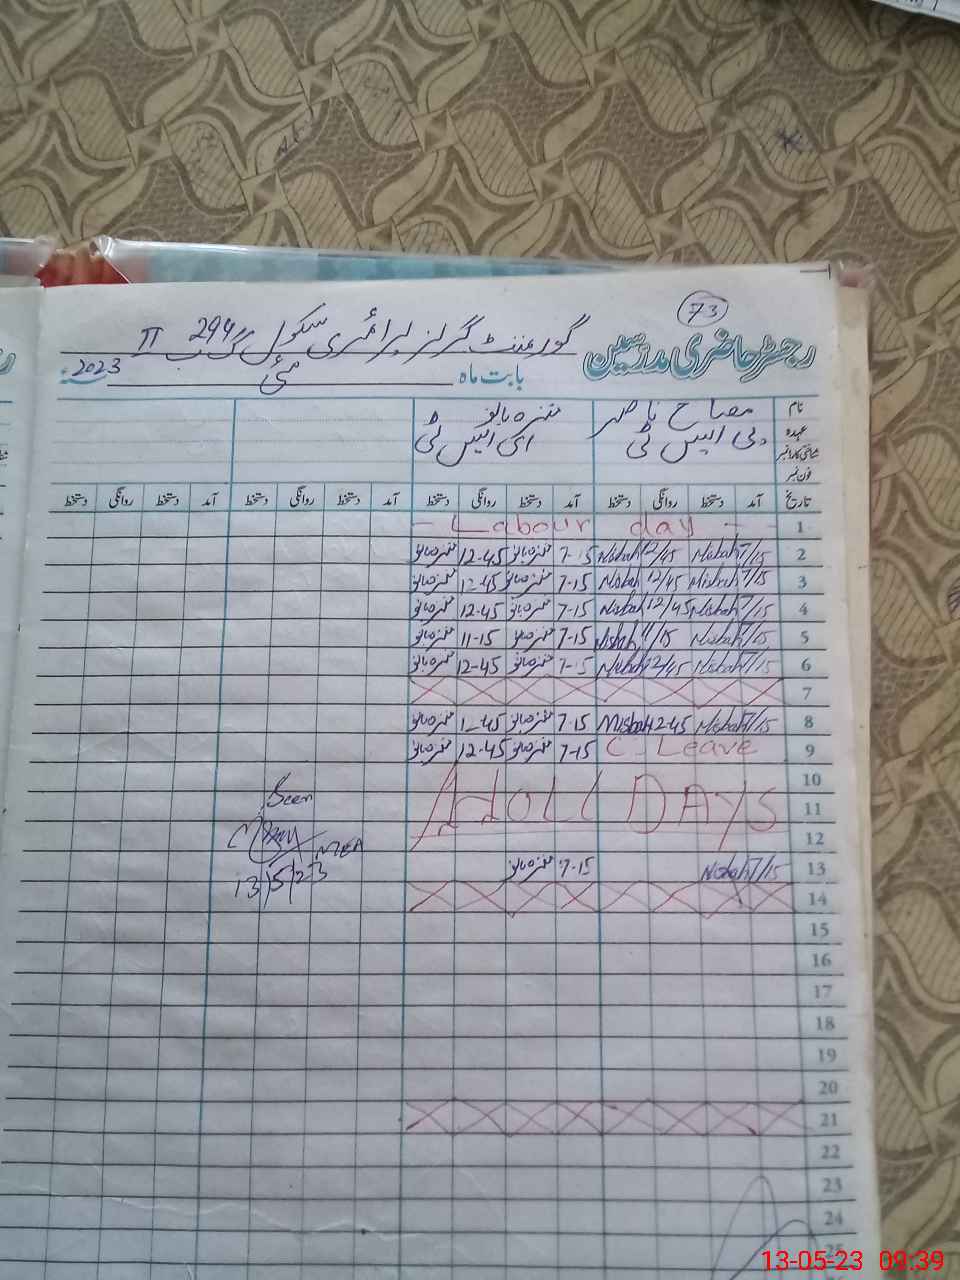 73
رجسٹر حاضری مدرسین گورنمنٹ گرلز پرائمری سکول 294 گ ب II
بابت ماہ مئی 2023
نام مصباح ناصر منزہ بانو
عہدہ پی ایس ٹی ای ایس ٹی
شناختی کارڈ نمبر
فون نمبر
تاریخ آمد دستخط روانگی دستخط آمد دستخط روانگی دستخط آمد دستخط روانگی دستخط
1 - Labour day - -
2 7/15 Misbah 12/45 Misbah 7-15 منزہ بانو 12-45 منزہ بانو
3 7/15 Misbah 12/45 Misbah 7-15 منزہ بانو 12-45 منزہ بانو
4 7/15 Misbah 12/45 Misbah 7-15 منزہ بانو 12-45 منزہ بانو
5 7/15 Misbah 11/15 Misbah 7-15 منزہ بانو 11-15 منزہ بانو
6 7/15 Misbah 12/45 Misbah 7-15 منزہ بانو 12-45 منزہ بانو
7
8 7/15 Misbah 12-45 Misbah 7-15 منزہ بانو 12-45 منزہ بانو
9 C-Leave 7-15 منزہ بانو 12-45 منزہ بانو
10
11 HOLI DAYS
12
Seen
MEA
13/5/23
13 7/15 Misbah 7-15 منزہ بانو
14
15
16
17
18
19
20
21
22
23
24
25
13-05-23 09:39